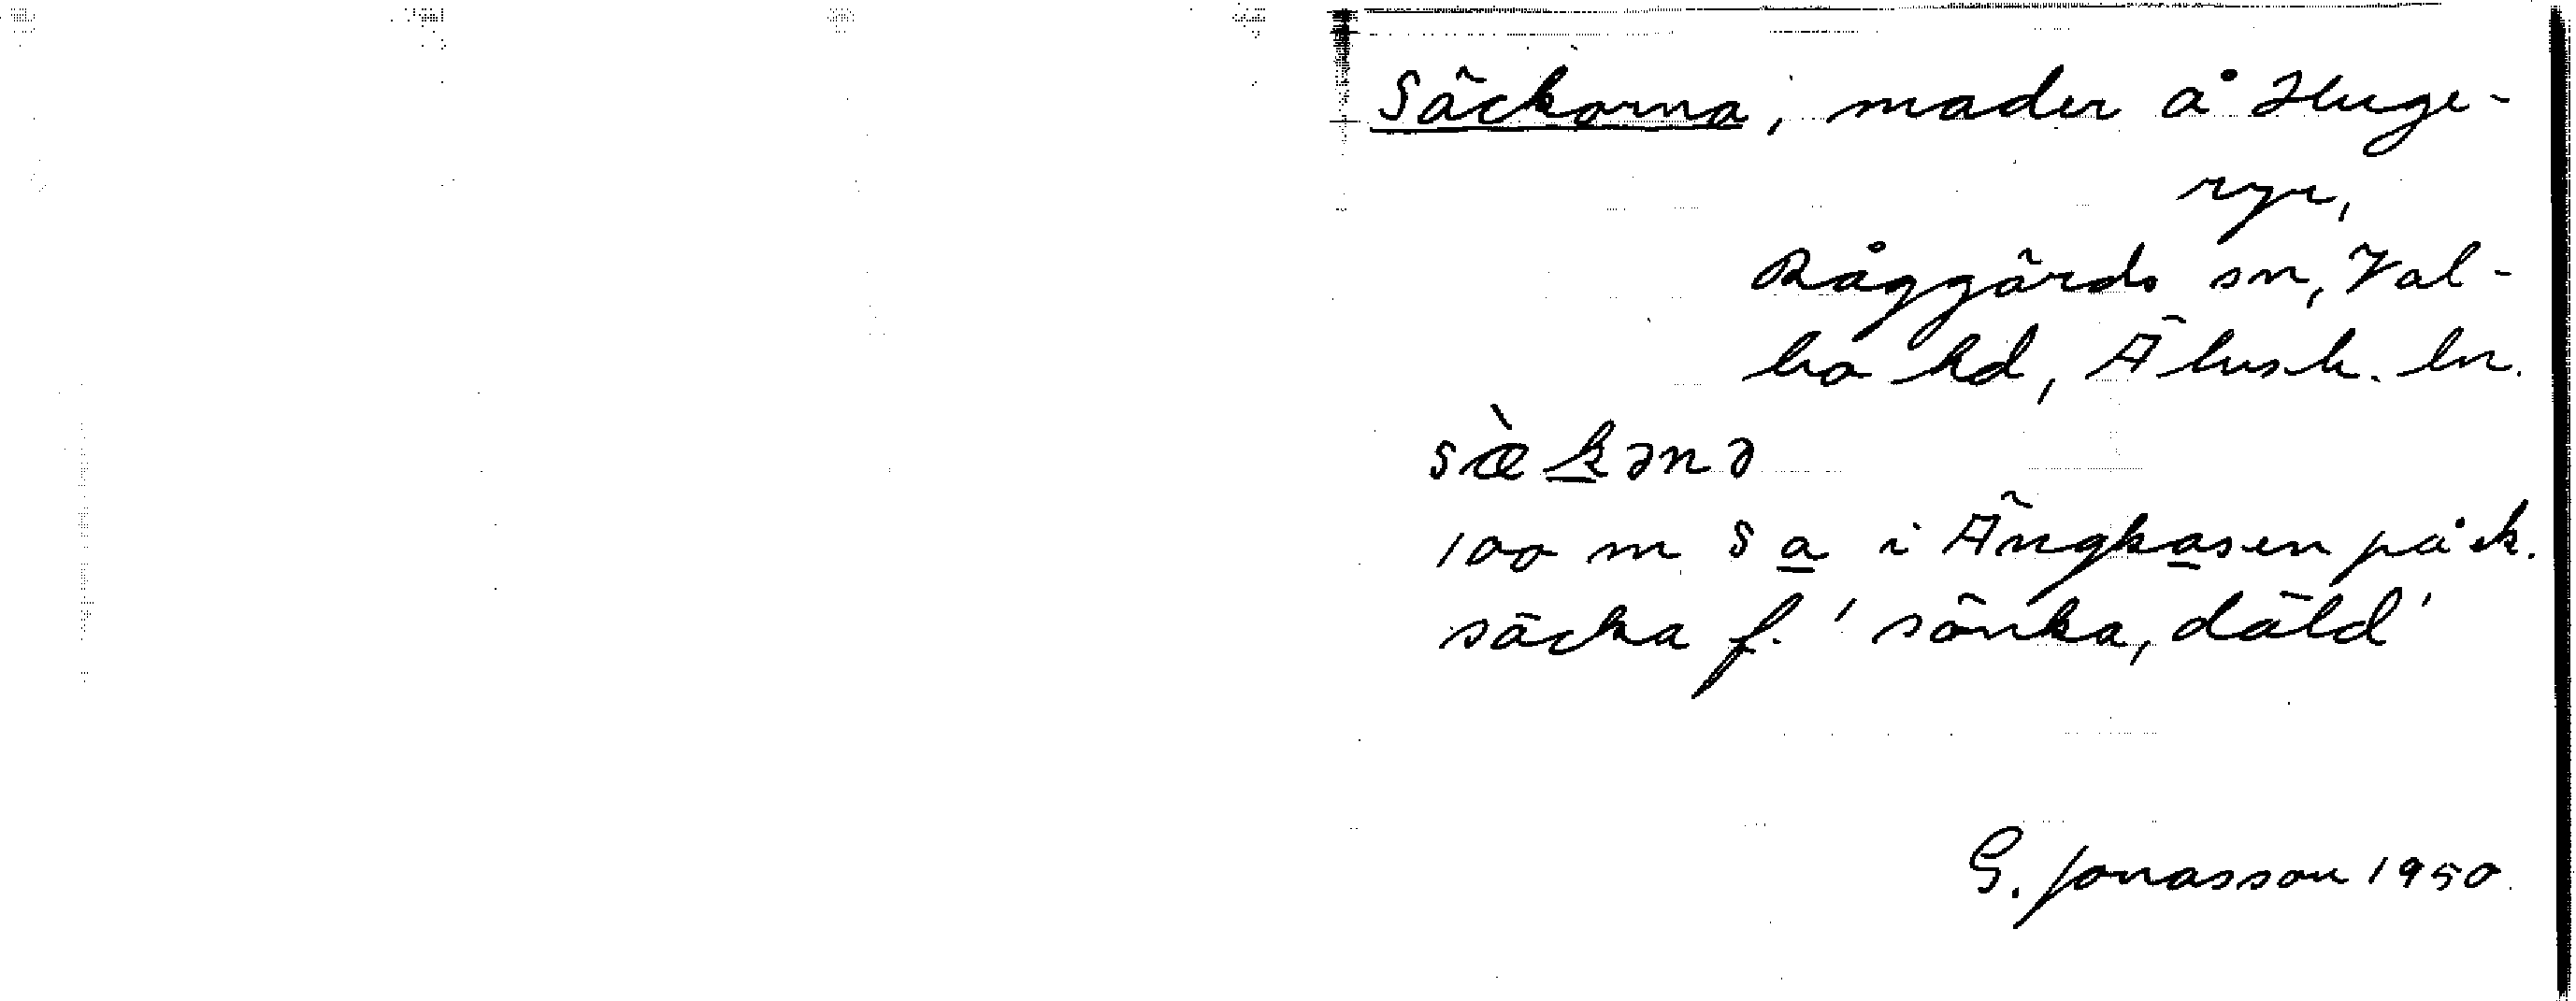 Säckorna, mader å Huge-
ryr,
Råggärds sn, Val-
bo hd, Älvsb. ln.
sæ̀kənə
100 m S a i Ängkasen på ek.
säcka f. 'sänka, däld'
G. Jonasson 1950.